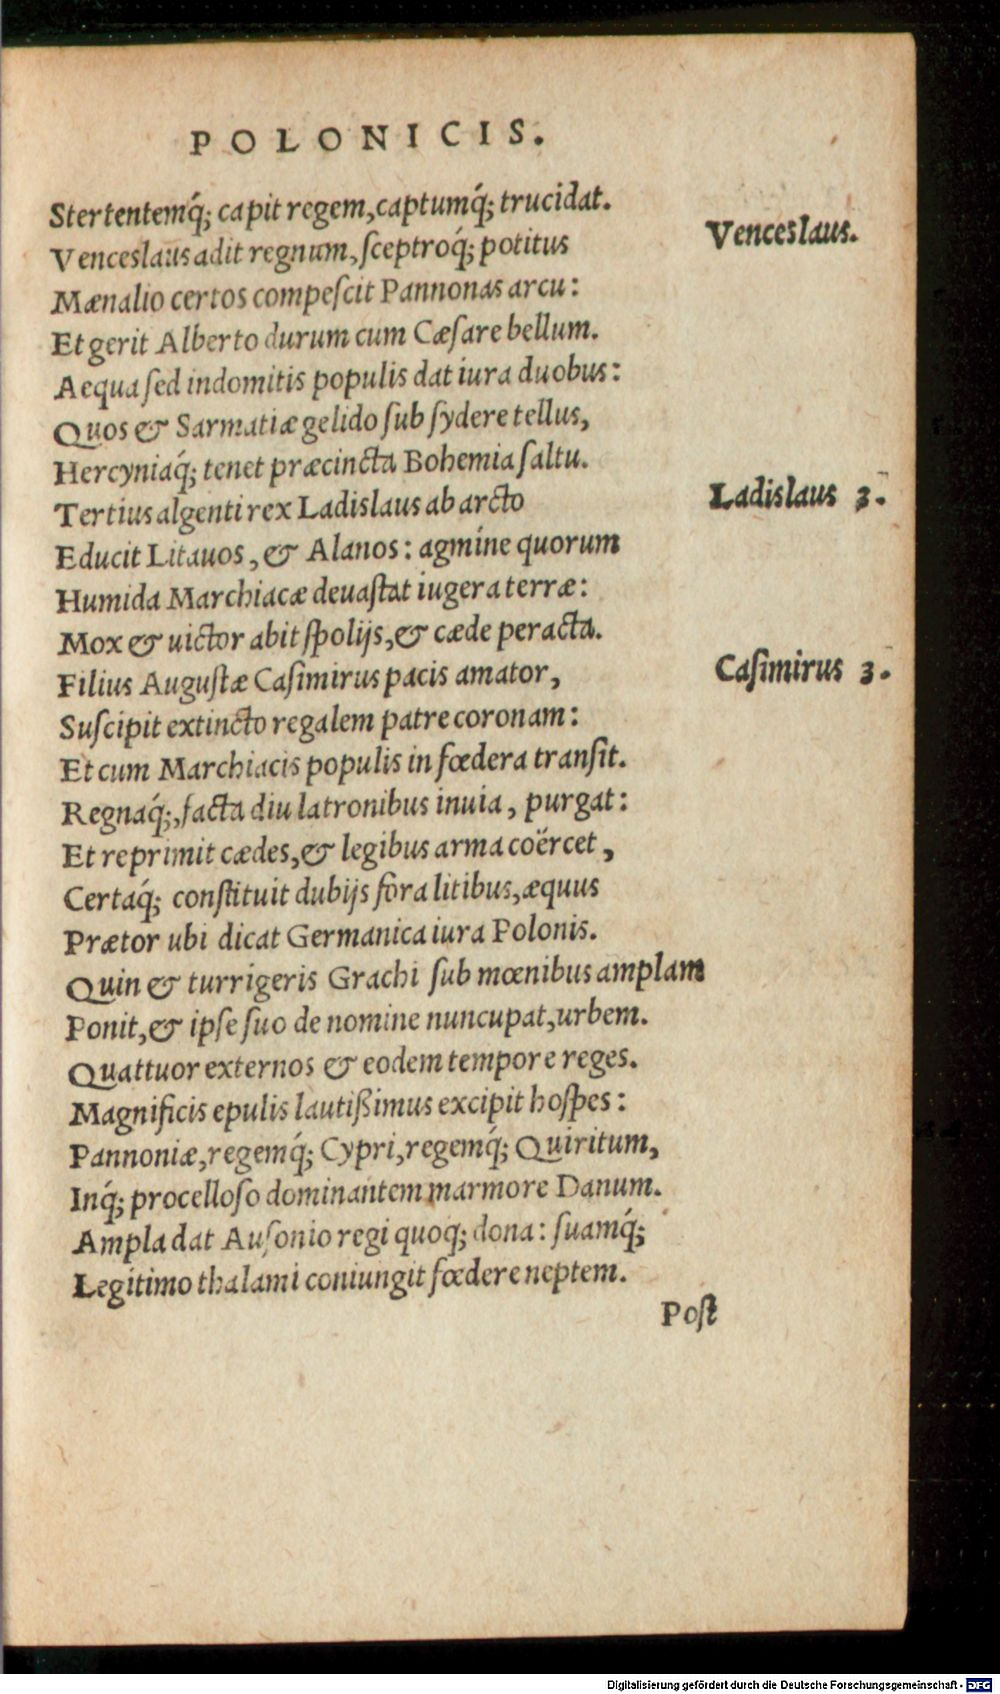 POLONICIS.
Stertentemq́; capit regem, captumq́; trucidat.
Venceslaus.
Venceslaus adit regnum, ſceptroq́; potitus
Mænalio certos compeſcit Pannonas arcu:
Et gerit Alberto durum cum Cæſare bellum.
Aequa ſed indomitis populis dat iura duobus:
Quos & Sarmatiæ gelido ſub ſydere tellus,
Hercyniaq́; tenet præcincta Bohemia ſaltu.
Ladislaus 3.
Tertius algenti rex Ladislaus ab arcto
Educit Litauos, & Alanos: agmine quorum
Humida Marchiacæ deuaſtat iugera terræ:
Mox & uictor abit ſpolijs, & cæde peracta.
Caſimirus 3.
Filius Auguſtæ Caſimirus pacis amator,
Suſcipit extincto regalem patre coronam:
Et cum Marchiacis populis in fœdera tranſit.
Regnaq́;, facta diu latronibus inuia, purgat:
Et reprimit cædes, & legibus arma coërcet,
Certaq́; conſtituit dubijs fora litibus, æquus
Prætor ubi dicat Germanica iura Polonis.
Quin & turrigeris Grachi ſub mœnibus amplam
Ponit, & ipſe ſuo de nomine nuncupat, urbem.
Quattuor externos & eodem tempore reges.
Magnificis epulis lautißimus excipit hoſpes:
Pannoniæ, regemq́; Cypri, regemq́; Quiritum,
Inq́; procelloſo dominantem marmore Danum.
Ampla dat Auſonio regi quoq; dona: ſuamq́;
Legitimo thalami coniungit fœdere neptem.
Poſt
Digitalisierung gefördert durch die Deutsche Forschungsgemeinschaft - DFG